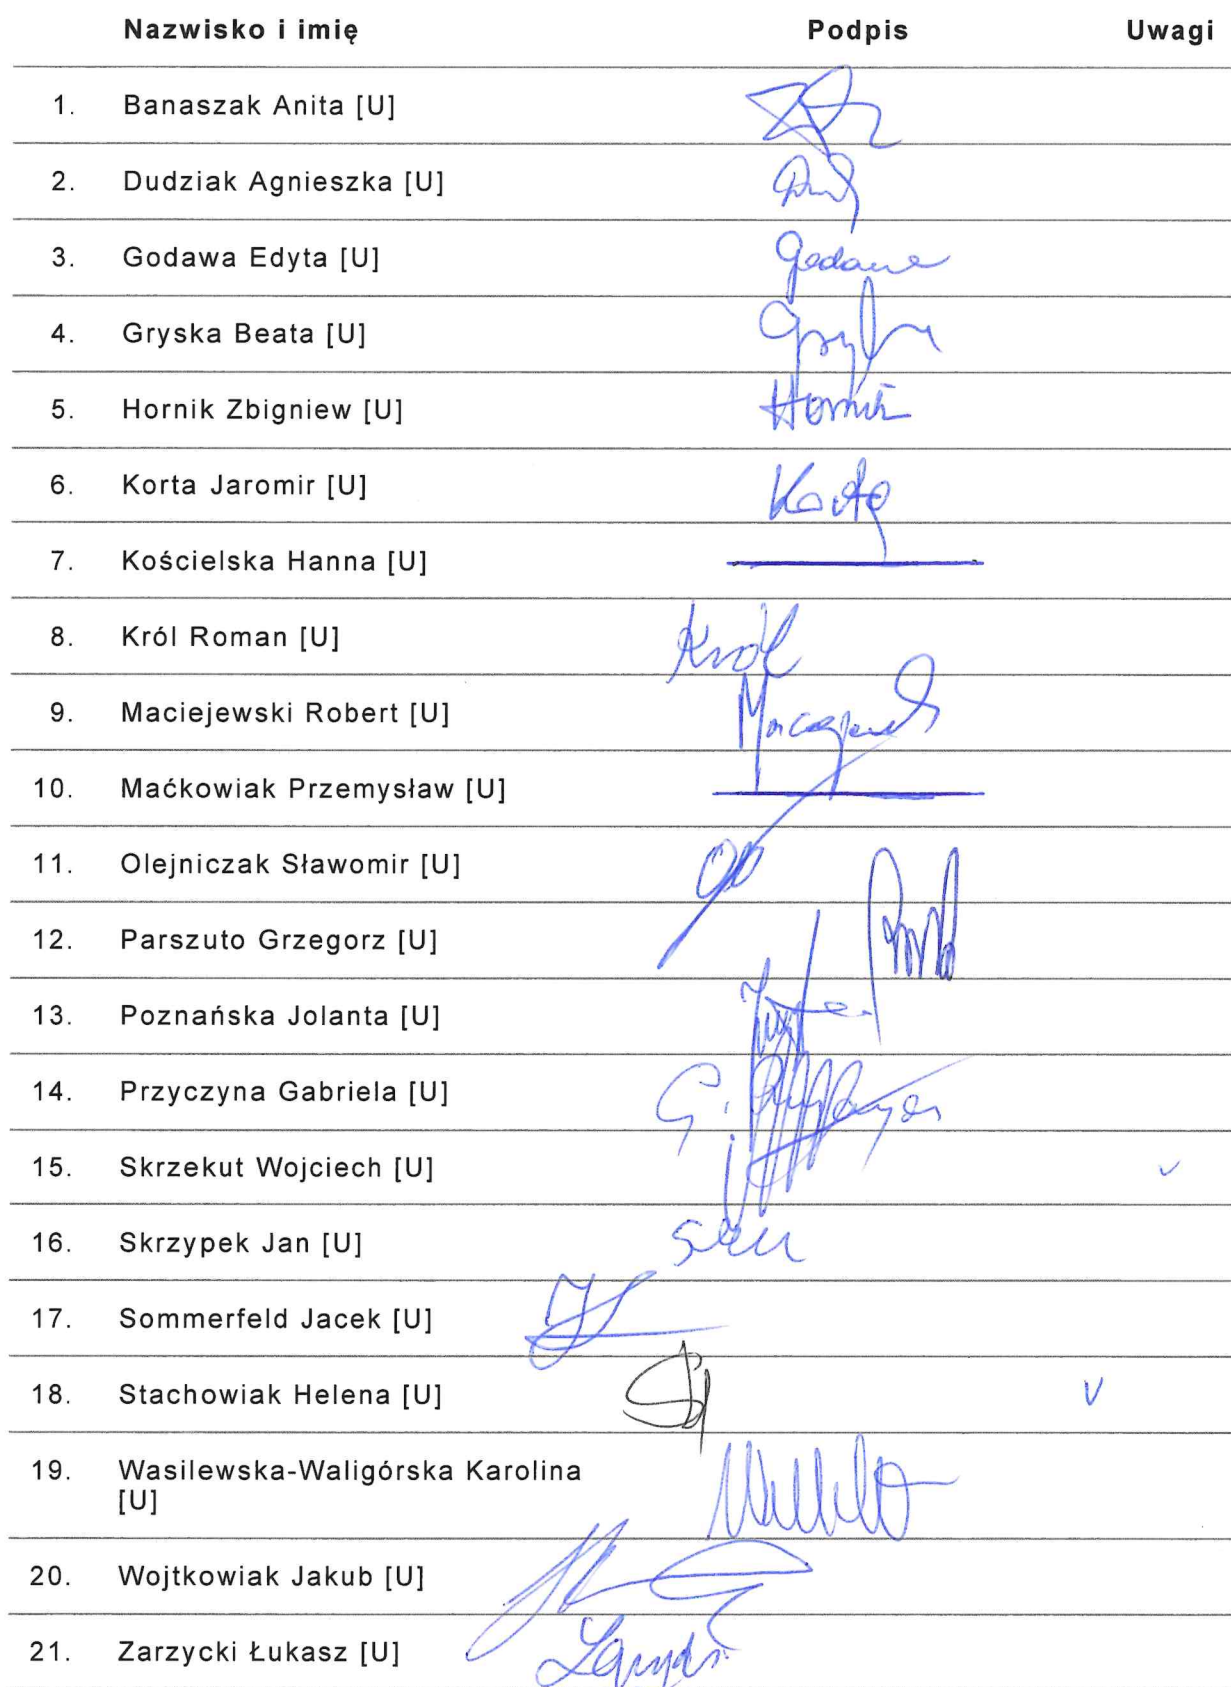 Nazwisko i imię Podpis Uwagi
1. Banaszak Anita [U]
2. Dudziak Agnieszka [U]
3. Godawa Edyta [U] Godawa
4. Gryska Beata [U]
5. Hornik Zbigniew [U] Hornik
6. Korta Jaromir [U] Korta
7. Kościelska Hanna [U]
8. Król Roman [U] Król
9. Maciejewski Robert [U]
10. Maćkowiak Przemysław [U]
11. Olejniczak Sławomir [U]
12. Parszuto Grzegorz [U]
13. Poznańska Jolanta [U]
14. Przyczyna Gabriela [U]
15. Skrzekut Wojciech [U]
16. Skrzypek Jan [U]
17. Sommerfeld Jacek [U]
18. Stachowiak Helena [U]
19. Wasilewska-Waligórska Karolina
[U]
20. Wojtkowiak Jakub [U]
21. Zarzycki Łukasz [U]